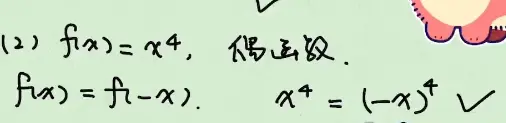 (2) f(x) = x⁴, 偶函数.
f(x) = f(-x). x⁴ = (-x)⁴ ✓